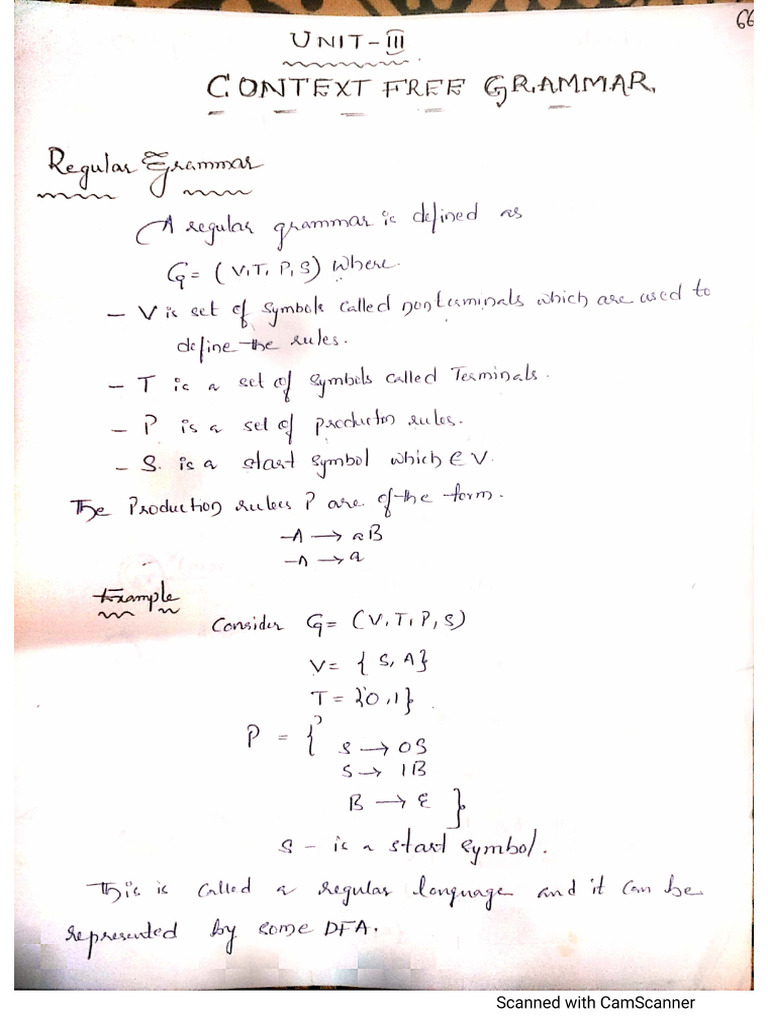 66
UNIT-III
CONTEXT FREE GRAMMAR.
Regular Grammar
A regular grammar is defined as
G = (V, T, P, S) where.
- V is set of symbols called nonterminals which are used to
define the rules.
- T is a set of symbols called Terminals.
- P is a set of production rules.
- S. is a start symbol which ∈ V.
The Production rules P are of the form.
A → aB
A → a
Example
Consider G = (V, T, P, S)
V = { S, A}
T = {0, 1}
P = { S → 0S
S → 1B
B → ε }
S - is a start symbol.
This is called a regular language and it can be
represented by some DFA.
Scanned with CamScanner